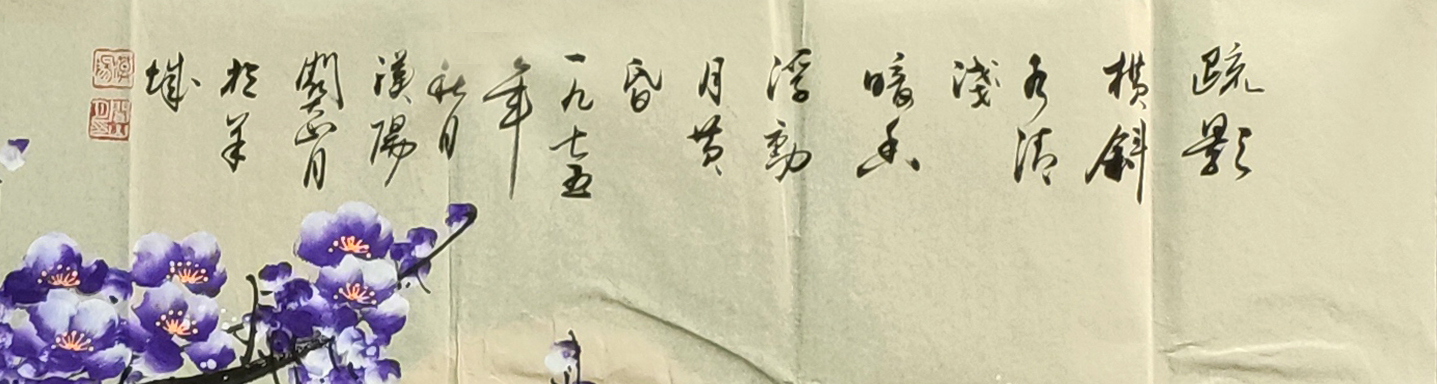 疏影
横斜
水清
淺
暗香
浮動
月黄
昏
一九七五
年
秋月
漢陽
關山月
於羊
城